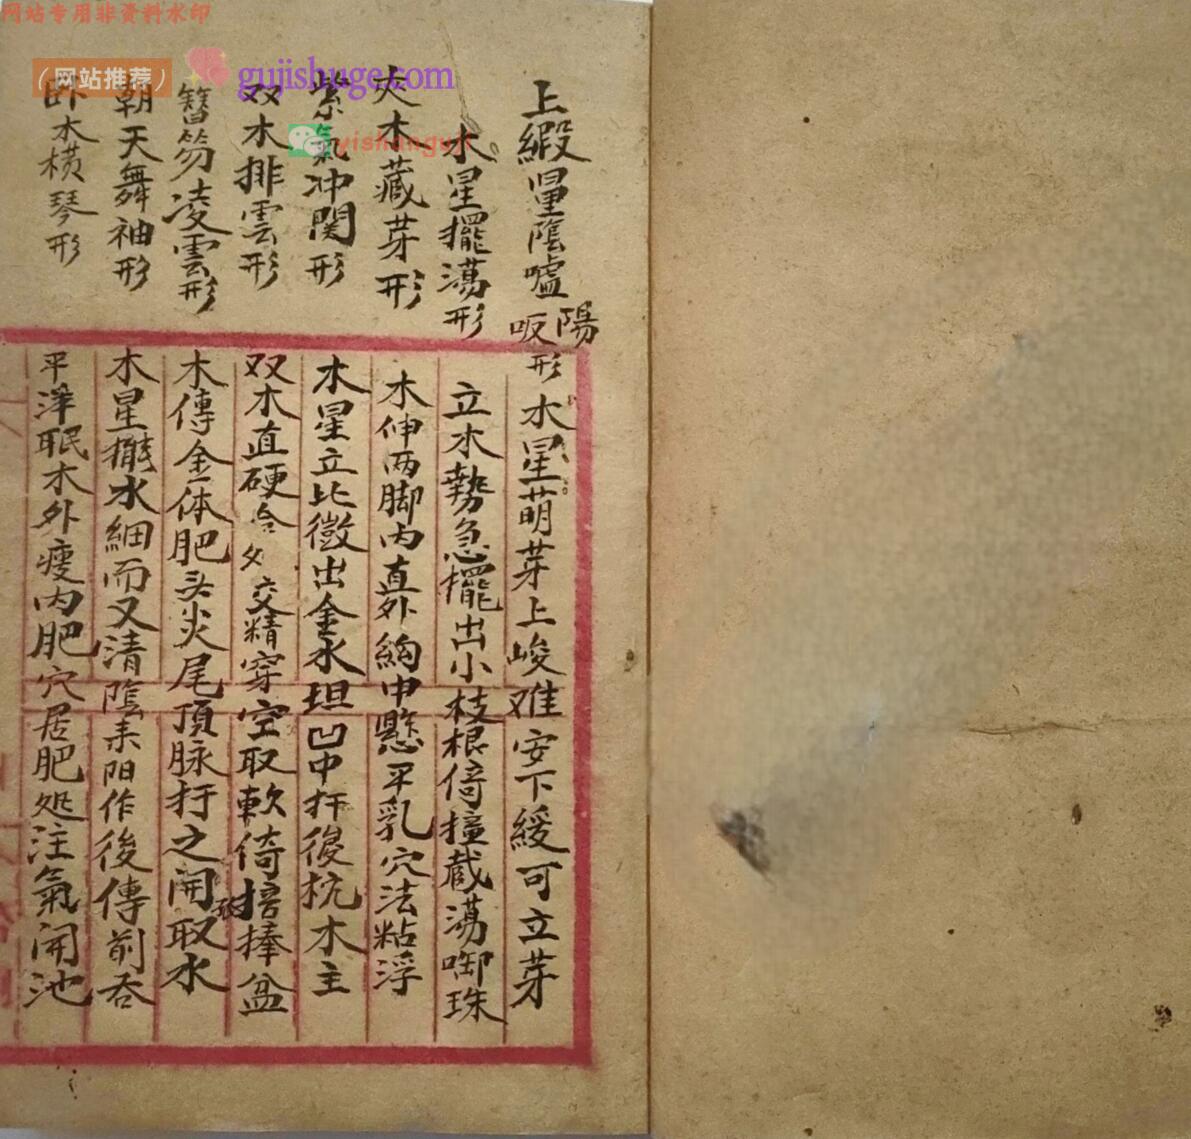 网站专用非资料水印
（网站推荐）
gujishuge.com
yishanguji
上緞暈蔭噓陽吸形
水星擺蕩形
夾木藏芽形
紫氣冲関形
双木排雲形
簪笏凌雲形
朝天舞袖形
卧木橫琴形
木星萌芽上峻难安下緩可立芽
立木勢急擺出小枝根倚撞蔵蕩啣珠
木伸两脚内直外鈎中懸平乳穴法粘浮
木星立比徵出金水坦凹中扦後枕木主
双木直硬合交精穿空取軟倚掊捧盆
木傳金体肥头尖尾頂脉扦之開取水
木星擺水細而又清蔭来阳作後傳前吞
平洋眠木外瘦内肥穴居肥処注氣開池